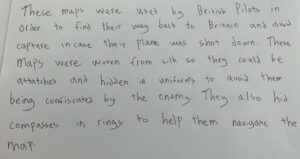 These maps were used by British Pilots in
order to find their way back to Britain and avoid
capture in case their plane was shot down. These
Maps were woven from silk so they could be
attatched and hidden in uniforms to avoid them
being confiscated by the enemy. They also hid
compasses in rings to help them navigate the
map.